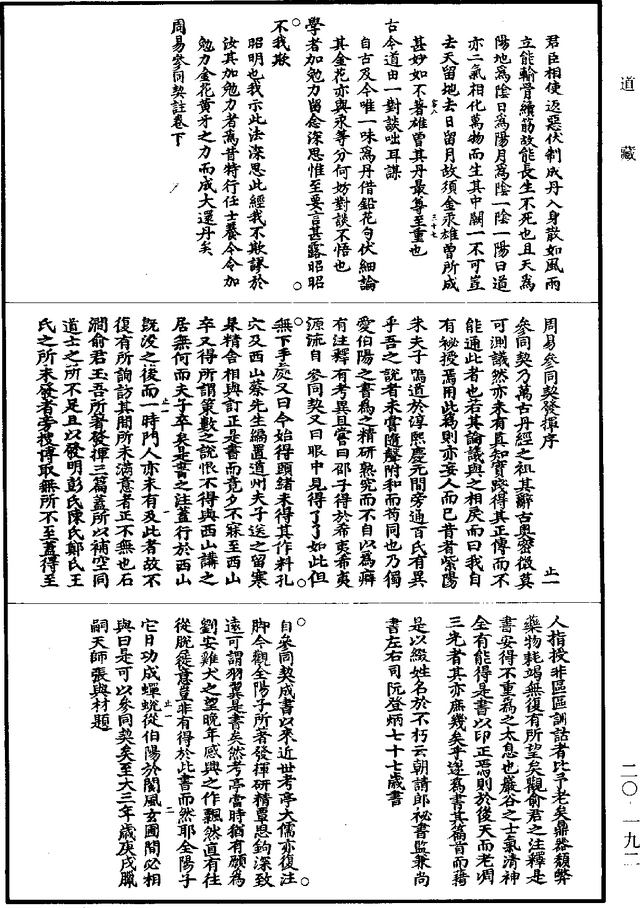 道藏
君臣相使返惡伏制成丹入身散如風雨
立能輸骨續筋故能長生不死也且天為
陽地為陰日為陽月為陰一陰一陽曰道
亦二氣相化萬物而生其中闕一不可豈
去天留地去日留月故須金汞雄曾所成
甚妙如不著雄曾其丹最尊至重也
古今道由一對談吐耳謀
自古及今唯一味為丹借鉛花勾伏細論
其金花亦與汞等分何妨對談不悟也
學者加勉力留念深思惟至要言甚露昭昭
不我欺
昭明也我示此法深思此經我不欺謬於
汝其加勉力者萬昔特行任士養今令加
勉力金花黃牙之力而成大還丹矣
周易參同契註卷下
周易參同契發揮序
參同契乃萬古丹經之祖其辭古奧密微莫
可測議然亦未有真知實踐得其正傳而不
能通此者也若其論議與之相戾而曰我自
有祕授焉用此為則亦妄人而已昔者紫陽
朱夫子鳴道於淳熙慶元間旁通百氏有異
乎吾之說者未嘗隨聲附和而苟同也乃獨
愛伯陽之書為之精研熟究而不自以為癖
有注釋有考異且嘗曰邵子得於希夷希夷
源流自參同契又曰眼中見得了了如此但
無下手處又曰今始得頭緒未得其作料孔
穴及西山蔡先生編置道州夫子送之留寒
泉精舍相與訂正是書而竟夕不寐至西山
卒又得所謂策數之說恨不得與西山講之
居無何而夫子卒矣是書之注蓋行於西山
既沒之後而一時門人亦未有及此者故不
復有所詢訪其間所未滿意者正不無也石
澗俞君玉吾所著發揮三篇蓋所以補空同
道士之所不足且以發明彭氏陳氏鄭氏王
氏之所未發者旁搜博取無所不至蓋得至
人指授非區區訓詁者比予老矣鼎器頹弊
藥物耗竭無復有所望矣觀俞君之注釋是
書安得不重為之太息也巖谷之士氣清神
全有能得是書以印正焉則於後天而老凋
三光者其亦庶幾矣乎遂為書其篇首而藉
是以綴姓名於不朽云朝請郎祕書監兼尚
書左右司阮登炳七十七歲書
自參同契成書以來近世考亭大儒亦復注
腳今觀全陽子所著發揮研精覃思鉤深致
遠可謂羽翼是書矣然考亭當時猶有願為
劉安雞犬之望晚年感興之作飄然直有往
從脫屣意豈非有得於此書而然耶全陽子
它日功成蟬蛻從伯陽於閬風玄圃間必相
與曰是可以參同契矣至大三年歲庚戌臘
嗣天師張與材題
二〇·一九二